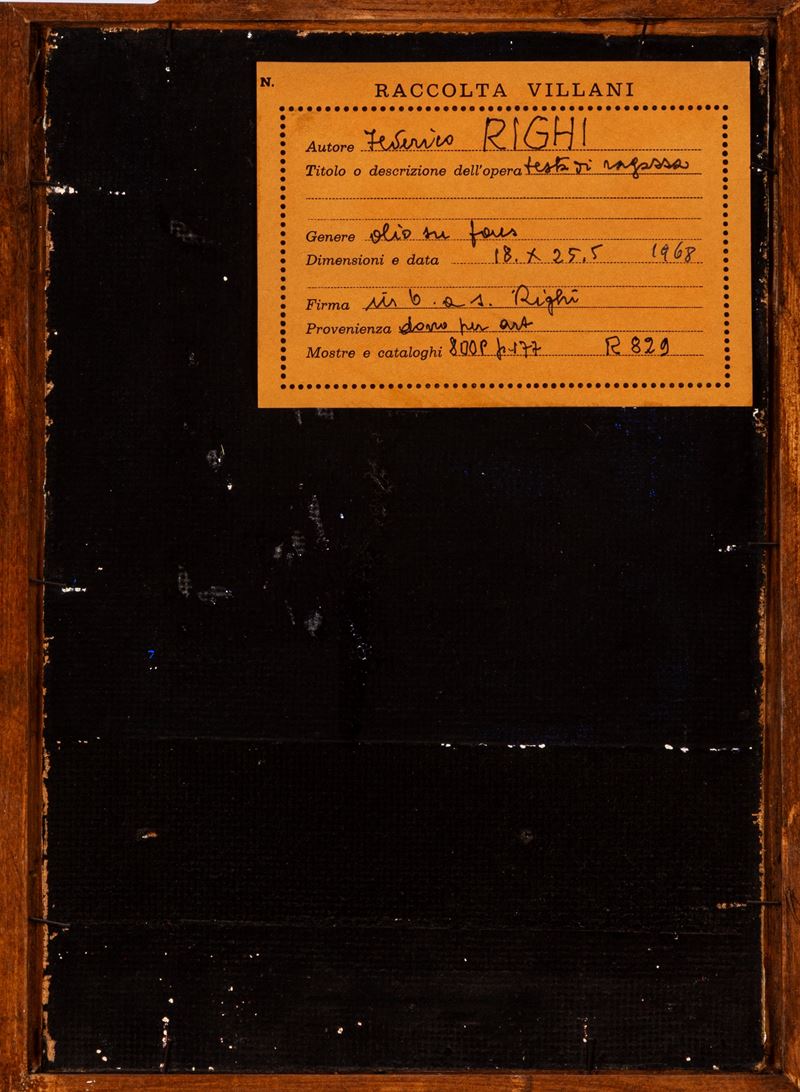 N.
RACCOLTA VILLANI
Autore Federico RIGHI
Titolo o descrizione dell'opera testa di ragazza
Genere olio su faes
Dimensioni e data 18. x 25,5 1968
Firma in b. a s. Righi
Provenienza dono per art
Mostre e cataloghi 800P p.177 R 829